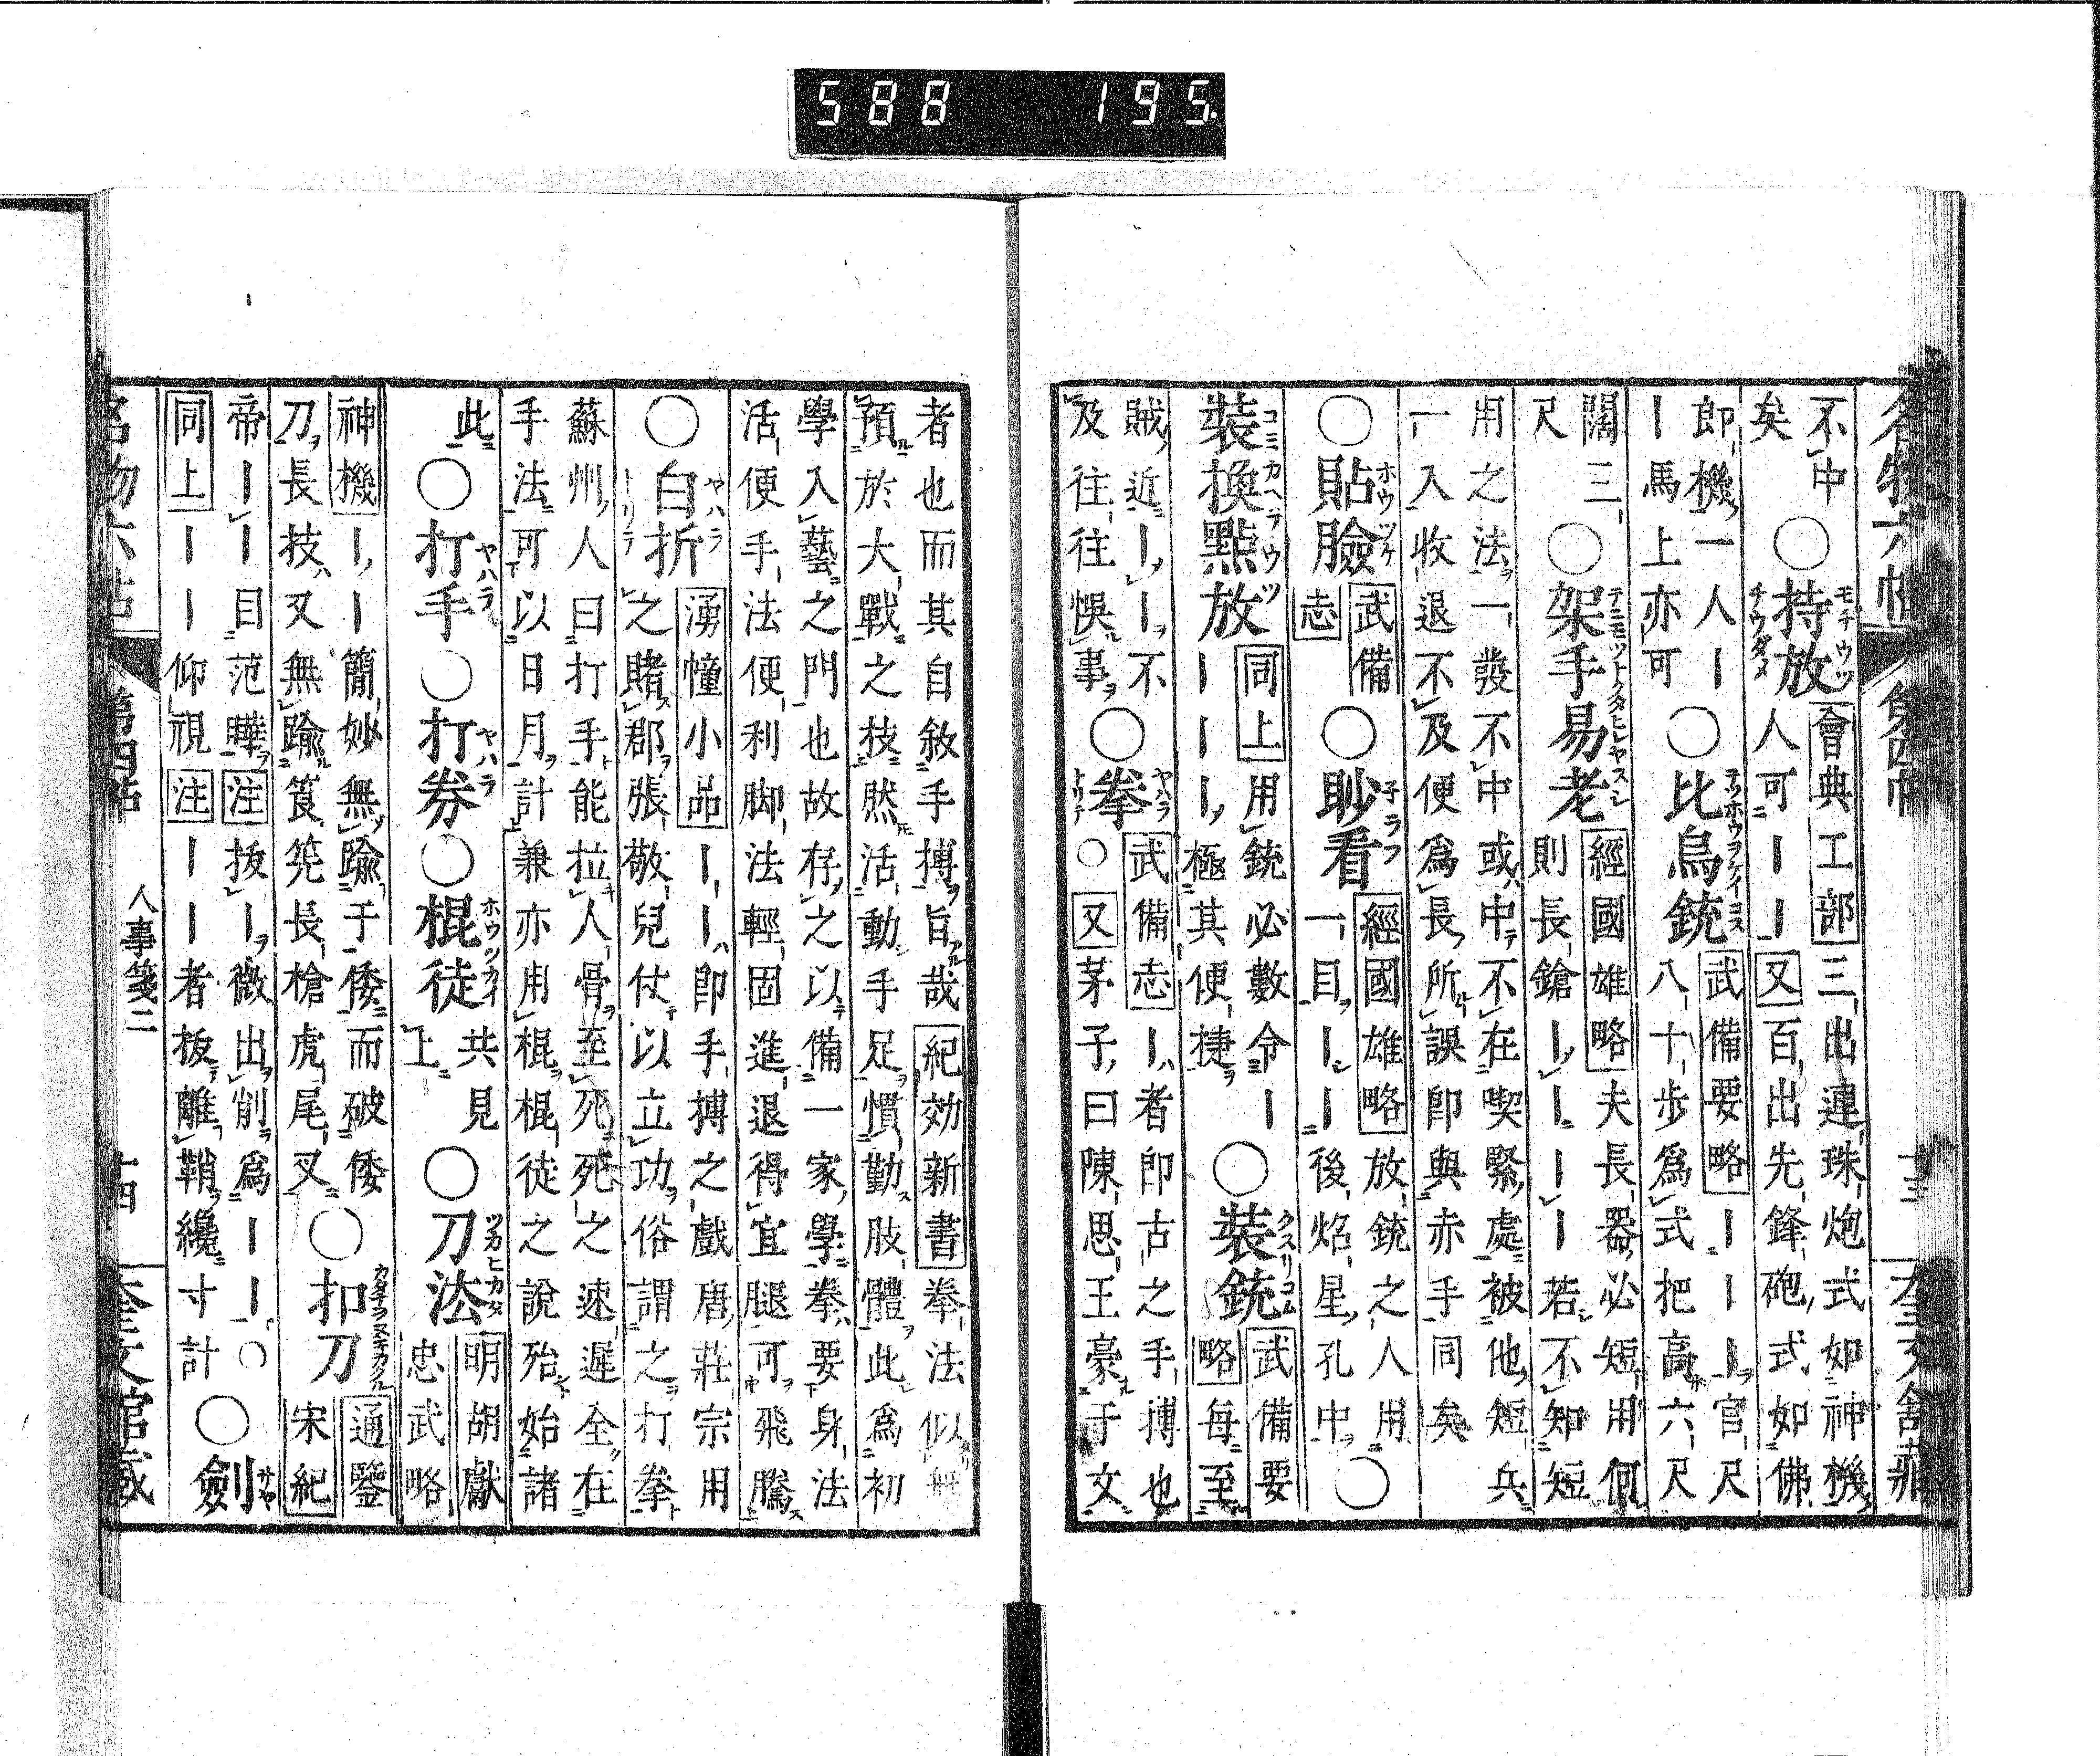 名物六帖 第四帖 十三 奎文館藏
不中
矣
○持放 モチウツ チウダメ
會典工部三出連珠炮式如神機
人可｜｜又百出先鋒砲式如佛
郎機一人｜
｜馬上亦可
○比鳥銃
武備要略｜｜｜官尺
八十步爲式把高六尺
闊三
尺
○架手易老 テニモツトクタヒレヤスシ
經國雄略夫長器必短用何
則長鎗｜｜｜｜若不知短
用之法一發不中或中不在喫緊處被他短兵
一入收退不及便爲長所誤即與赤手同矣
○貼臉 ホウツケ
武備
志
○眇看 子ラフ
經國雄略放銃之人用
一目｜｜後焰星孔中
○裝換點放 コミカヘテウツ
同上用銃必數令｜
｜｜｜｜極其便捷
○裝銃 クスリコム
武備要
略每至
賊近｜｜不
及往往悞事
○拳 ヤハラ トリテ
武備志｜者即古之手搏也
○又茅子曰陳思王豪于文
者也而其自敘手搏旨哉紀効新書拳法似無
預於大戰之技然活動手足慣勤肢體此爲初
學入藝之門也故存之以備一家學拳要身法
活便手法便利脚法輕固進退得宜腿可飛騰
○白折 ヤハラ トリテ
湧幢小品｜｜即手搏之戲唐莊宗用
之賭郡張敬兒仗以立功俗謂之打拳
蘇州人曰打手能拉人骨至死死之速遲全在
手法可以日月計兼亦用棍棍徒之說殆始諸
此
○打手 ヤハラ
○打劵 ヤハラ
○棍徒 ホウツカイ
共見
上
○刀法 ツカヒカタ
明胡獻
忠武略
神機｜｜簡妙無踰于倭而破倭
刀長技又無踰筤筅長槍虎尾又
○扣刀
通鑒
宋紀
帝｜｜目范曄注拔｜微出削爲｜｜○
同上｜｜仰視注｜｜者拔離鞘纔寸計
○劍 サヤ
名物六帖 第四帖 人事箋二 十四 奎文館藏
588 195